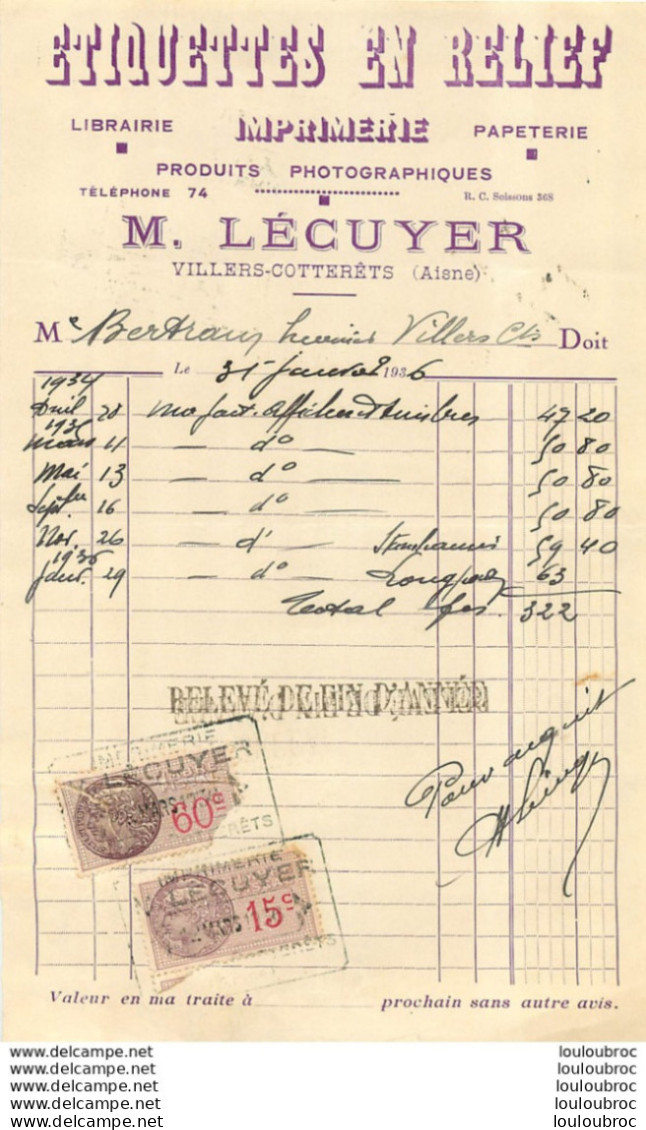 ETIQUETTES EN RELIEF
LIBRAIRIE IMPRIMERIE PAPETERIE
PRODUITS PHOTOGRAPHIQUES
TÉLÉPHONE 74 R. C. Soissons 368
M. LÉCUYER
VILLERS-COTTERÊTS (Aisne)
Me Bertrand Villers Cts Doit
Le 31 janvier 1936
1934
20 affiches timbres 47 20
1935
Mars 11 — do — 50 80
Mai 13 — do — 50 80
Septbre 16 — do — 50 80
Nov. 26 — do 59 40
1936
Janv. 29 — do — 63
Total frs 322
RELEVÉ DE FIN D'ANNÉE
Pour acquit
IMPRIMERIE
LÉCUYER
60c
MARS
IMPRIMERIE
LÉCUYER
15c
MARS
Valeur en ma traite à prochain sans autre avis.
www.delcampe.net louloubroc
www.delcampe.net louloubroc
www.delcampe.net louloubroc
www.delcampe.net louloubroc
www.delcampe.net louloubroc